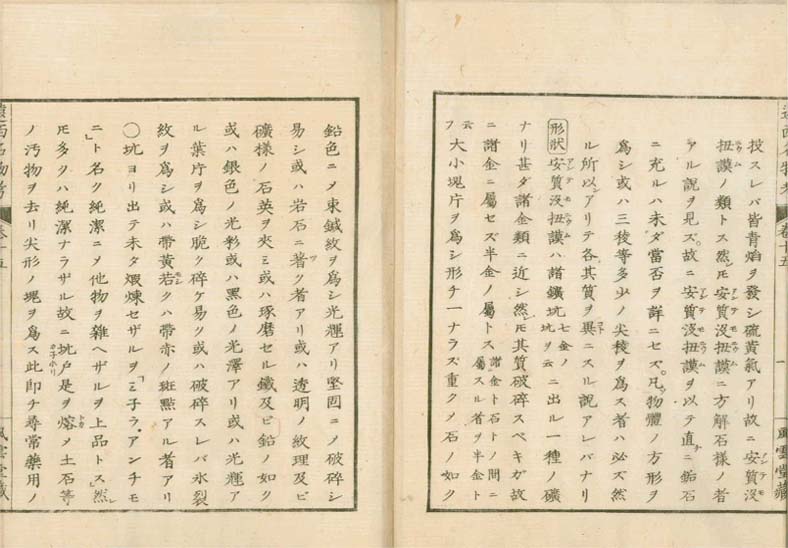 投スレバ皆青焔ヲ發シ硫黄氣アリ故ニ安質没
扭謨ノ類トス然𪜈安質没扭謨ニ方解石樣ノ者
アル説ヲ見ズ故ニ安質没扭謨ヲ以テ直ニ鉐石
ニ充ルハ未ダ當否ヲ詳ニセズ凡物體ノ方形ヲ
為シ或ハ三稜等多少ノ尖稜ヲ為ス者ハ必ズ然
ル所以アリテ各其質ヲ異ニスル説アレバナリ
形狀 安質没扭謨ハ諸鑛坑七金ノ坑ヲ云ニ出ル一種ノ礦
ナリ甚ダ諸金類ニ近シ然𪜈其質破碎スベキガ故
ニ諸金ニ屬セズ半金ノ屬トス諸金ト石トノ間ニ屬スル者ヲ半金ト
云フ大小塊片ヲ為シ形チ一ナラズ重クメ石ノ如ク
遠西名物考 卷十五 一 風雲堂藏
鉛色ニメ束鍼紋ヲ為シ光輝アリ堅固ニメ破碎シ
易シ或ハ岩石ニ著ク者アリ或ハ透明ノ紋理及ビ
礦樣ノ石英ヲ夾ミ或ハ琢磨セル鐵及ビ鉛ノ如ク
或ハ銀色ノ光彩或ハ黑色ノ光澤アリ或ハ光輝ア
ル葉片ヲ為シ脆ク碎ケ易ク或ハ破碎スレバ氷裂
紋ヲ為シ或ハ帶黃若クハ帶赤ノ斑點アル者アリ
〇坑ヨリ出テ未タ煆煉セザルヲ「ミ子ラアンチモ
ニト名ク純潔ニメ他物ヲ雜ヘザルヲ上品トス」然
𪜈多クハ純潔ナラザル故ニ坑戸是ヲ熔メ土石等
ノ汚物ヲ去リ尖形ノ塊ヲ為ス此即チ尋常藥用ノ
遠西名物考 卷十五 風雲堂藏